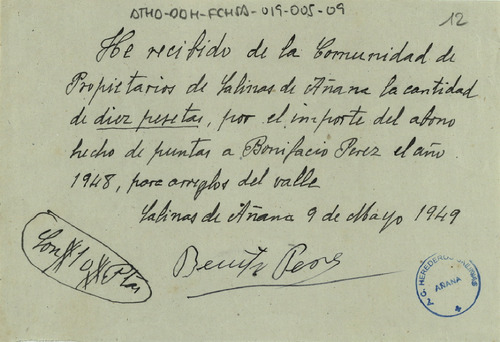 ATHA-DDH-FCHSA-019-005-09
12
He recibido de la Comunidad de
Propietarios de Salinas de Añana la cantidad
de diez pesetas, por el importe del abono
hecho de puntas a Bonifacio Perez el año
1948, para arreglos del valle
Salinas de Añana 9 de Mayo 1949
Son # 10 # Ptas
Benito Perez
AÑANA